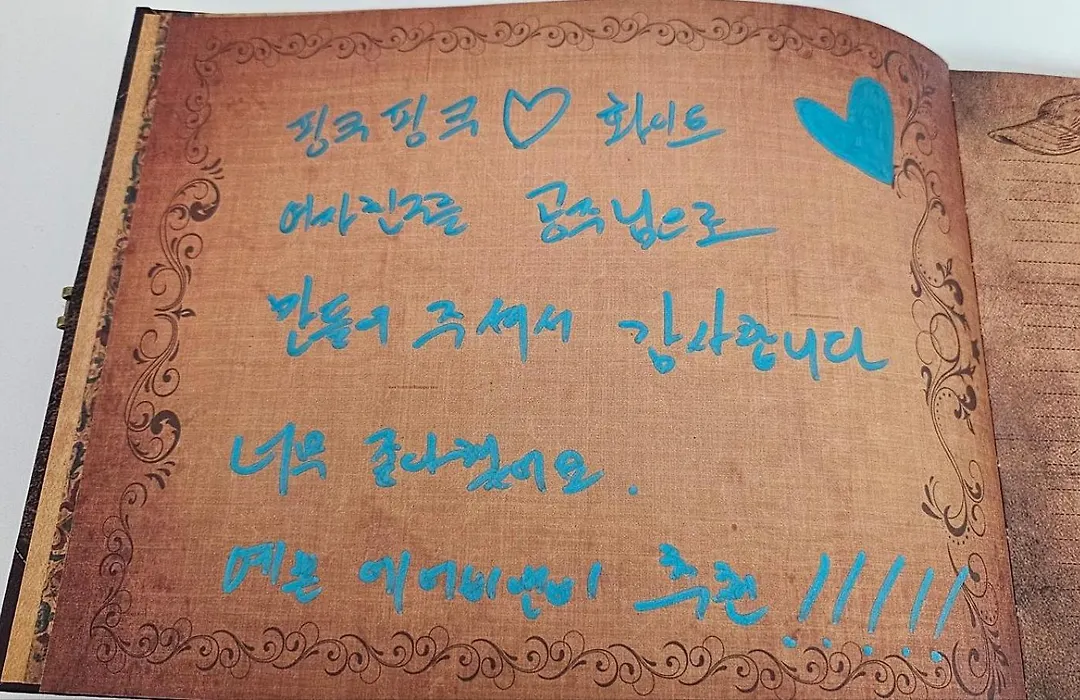 핑크핑크 ♡ 화이트
여자친구를 공주님으로
만들어 주셔서 감사합니다
너무 좋아했어요.
예쁜 에어비앤비 추천 !!!!!